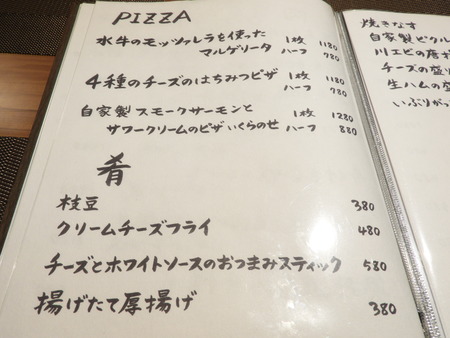 PIZZA
水牛のモッツァレラを使った 1枚 1180
マルゲリータ ハーフ 780
4種のチーズのはちみつピザ 1枚 1180
ハーフ 780
自家製スモークサーモンと 1枚 1280
サワークリームのピザいくらのせ ハーフ 880
肴
枝豆 380
クリームチーズフライ 480
チーズとホワイトソースのおつまみスティック 580
揚げたて厚揚げ 380
焼きなす
自家製ピクル
川エビの唐
チーズの盛
生ハムの盛
いぶりがっ